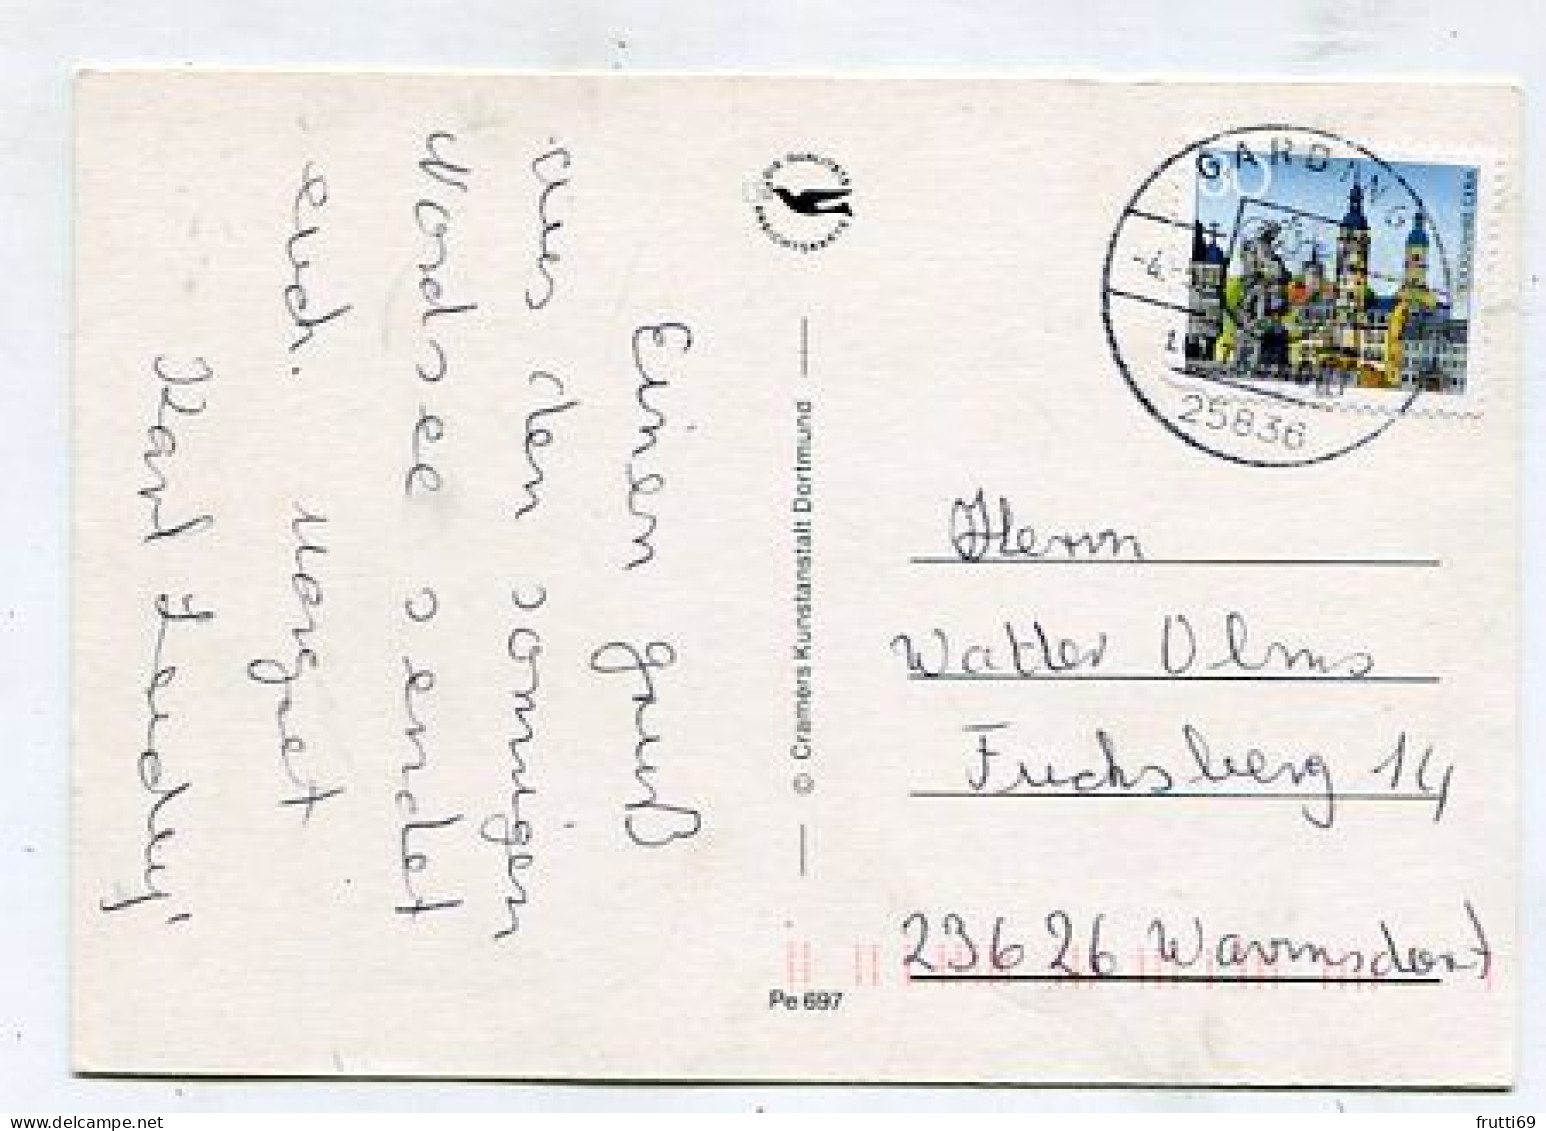 Einen gruß
aus den sonnigen
Nordsee sendet
euch. Margret
Karl Heuduj
© Cramers Kunstanstalt Dortmund
Pe 697
GARDING
-4.-
25836
Herrn
Walter Olms
Fuchsberg 14
23626 Warmsdorf
frutti69